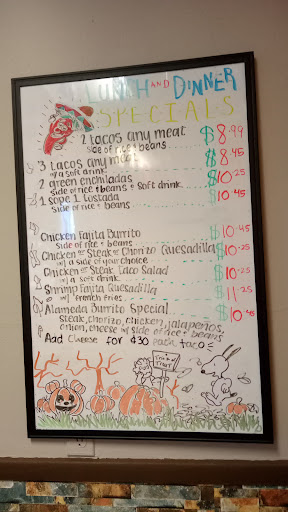 LUNCH AND DINNER
SPECIALS
2 tacos any meat $8.99
side of rice + beans
3 tacos any meat $8.45
w/a soft drink
2 green enchiladas $10.25
side of rice + beans + soft drink
1 sope 1 tostada $10.45
side of rice + beans
Chicken Fajita Burrito $10.45
side of rice + beans
Chicken or Steak or Chorizo Quesadilla $10.25
w/ a side of your choice
Chicken or Steak Taco Salad $10.25
w/ a soft drink
Shrimp Fajita Quesadilla $11.25
w/ French Fries
Alameda Burrito Special $10.45
Steak, chorizo, chicken, jalapeños,
onion, cheese w/ side of rice + beans
Add cheese for $.30 each taco
Trick or
Treat